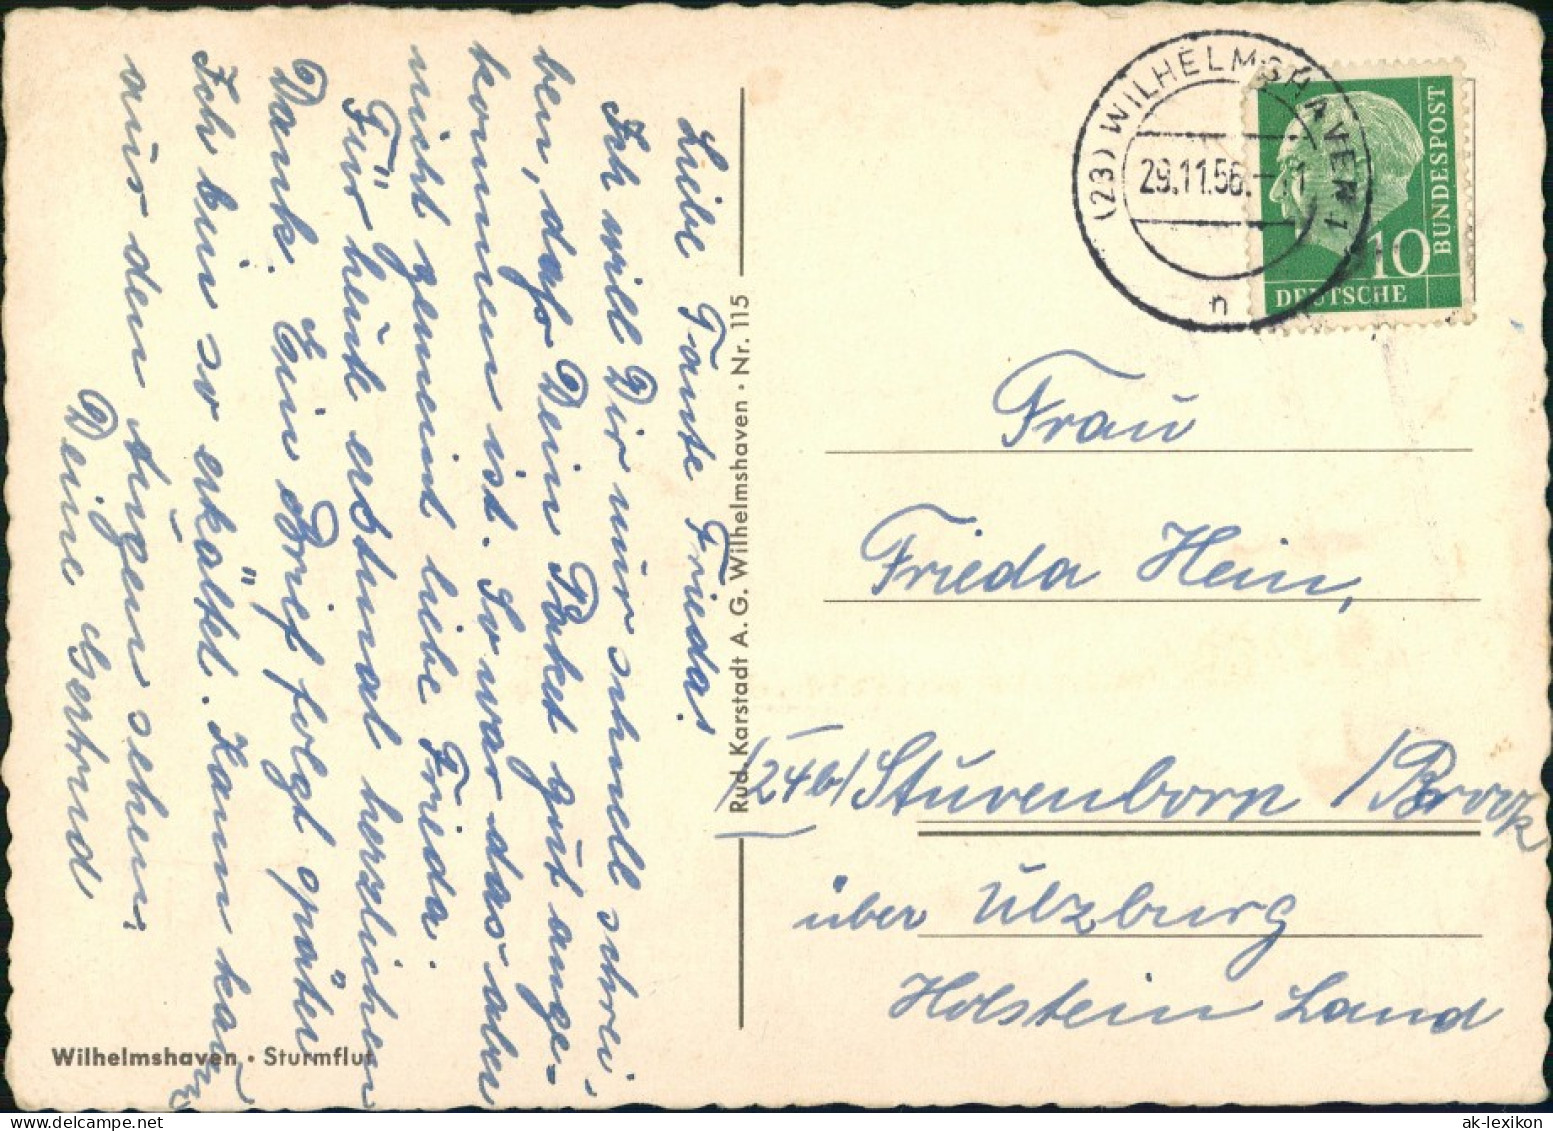 Liebe Tante Frieda!
Ich will Dir nur schnell schrei-
ben, daß Dein Paket gut ange-
kommen ist. So war das aber
nicht gemeint liebe Frieda.
Für heute erstmal herzlichen
Dank. Ein Brief folgt später
Ich bin so erkältet. Kann kaum
aus den Augen sehen.
Deine Gertrud
Wilhelmshaven • Sturmflut
Rud. Karstadt A. G. Wilhelmshaven • Nr. 115
(23) WILHELMSHAVEN 1
29.11.56.
n
DEUTSCHE
BUNDESPOST
10
Frau
Frieda Hein,
/24b/ Stuvenborn /Brook
über Ulzburg
Holstein Land
ak-lexikon.com